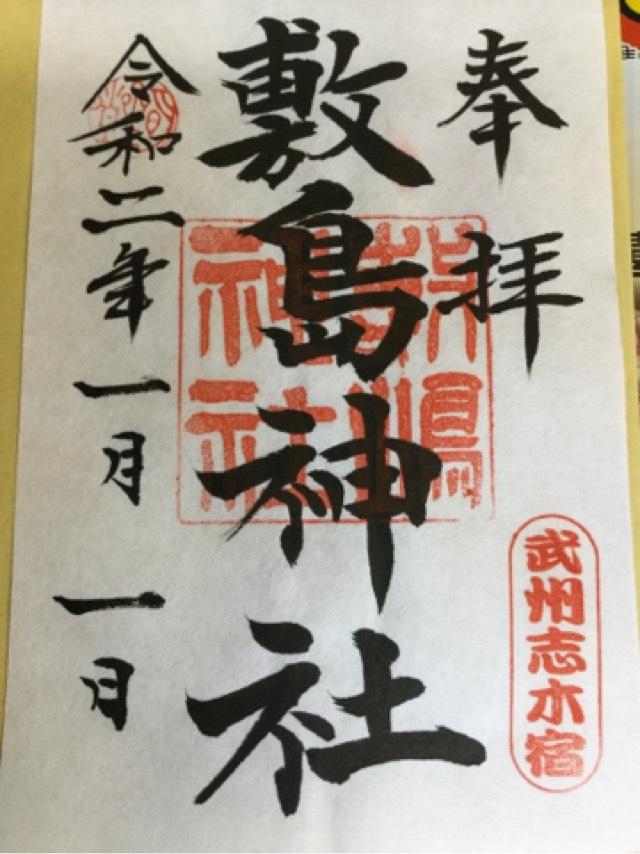 奉拝
敷島神社
令和二年一月一日
武州志木宿
敷嶋
神社